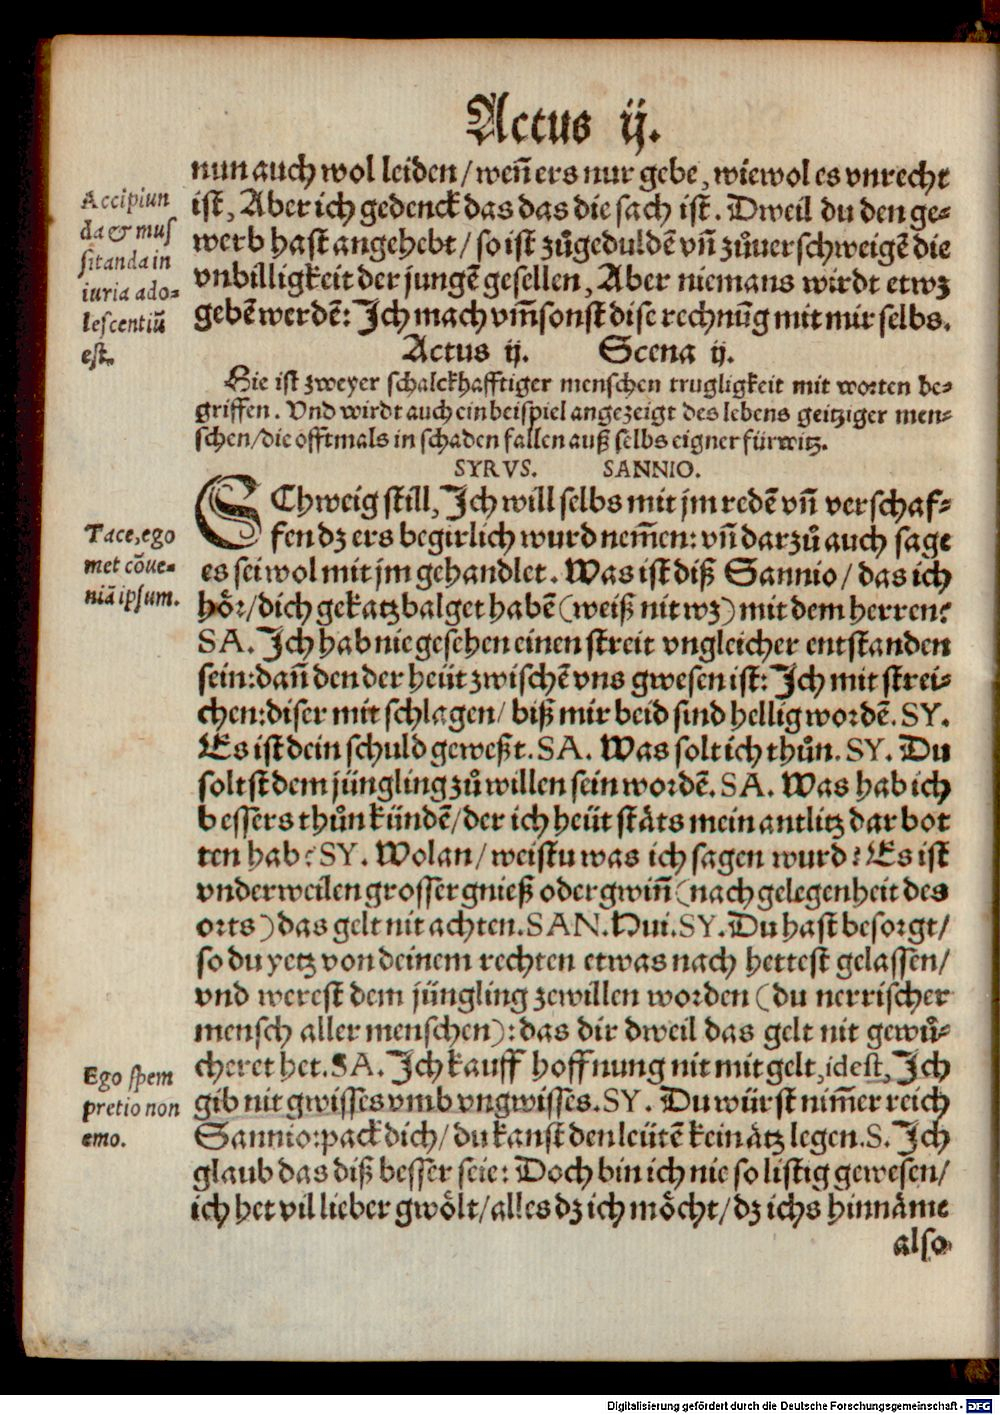 Actus ij.
nun auch wol leiden/ wen̄ ers nur gebe, wiewol es vnrecht
ist, Aber ich gedenck das das die sach ist. Dweil du den ge⸗
werb hast angehebt/ so ist zůgeduldē vn̄ zůuerschweigē die
vnbilligkeit der jungē gesellen, Aber niemans wirdt etwz
gebē werdē: Ich mach vm̄sonst dise rechnūg mit mir selbs.
Accipiun
da & mus
sitanda in
iuria ado⸗
lescentiū
est.
Actus ij. Scena ij.
Hie ist zweyer schalckhafftiger menschen trugligkeit mit worten be⸗
griffen. Vnd wirdt auch ein beispiel angezeigt des lebens geitziger men⸗
schen/die offtmals in schaden fallen auß selbs eigner fürwitz.
SYRVS. SANNIO.
SChweig still, Ich will selbs mit jm redē vn̄ verschaf⸗
fen dz ers begirlich wurd nem̄en: vn̄ darzů auch sage
es sei wol mit jm gehandlet. Was ist diß Sannio/ das ich
hör/dich gekatzbalget habē (weiß nit wz) mit dem herren?
Tace, ego
met cōue⸗
niā ipsum.
SA. Ich hab nie gesehen einen streit vngleicher entstanden
sein: dan̄ den der heüt zwischē vns gwesen ist: Ich mit strei⸗
chen: diser mit schlagen/ biß mir beid sind hellig wordē. SY.
Es ist dein schuld geweßt. SA. Was solt ich thůn. SY. Du
soltst dem jüngling zů willen sein wordē. SA. Was hab ich
bessers thůn kündē/der ich heüt stäts mein antlitz dar bot
ten hab? SY. Wolan/ weistu was ich sagen wurd? Es ist
vnderweilen grosser gnieß oder gwin̄ (nach gelegenheit des
orts) das gelt nit achten. SAN. Hui. SY. Du hast besorgt/
so du yetz von deinem rechten etwas nach hettest gelassen/
vnd werest dem jüngling zewillen worden (du nerrischer
mensch aller menschen): das dir dweil das gelt nit gewů⸗
cheret het. SA. Ich kauff hoffnung nit mit gelt, idest, Ich
gib nit gwisses vmb vngwisses. SY. Du würst nim̄er reich
Sannio: pack dich/ du kanst den leütē kein ätz legen. S. Ich
Ego spem
pretio non
emo.
glaub das diß besser seie: Doch bin ich nie so listig gewesen/
ich het vil lieber gwölt/ alles dz ich möcht/ dz ichs hinnäme
also
Digitalisierung gefördert durch die Deutsche Forschungsgemeinschaft - DFG